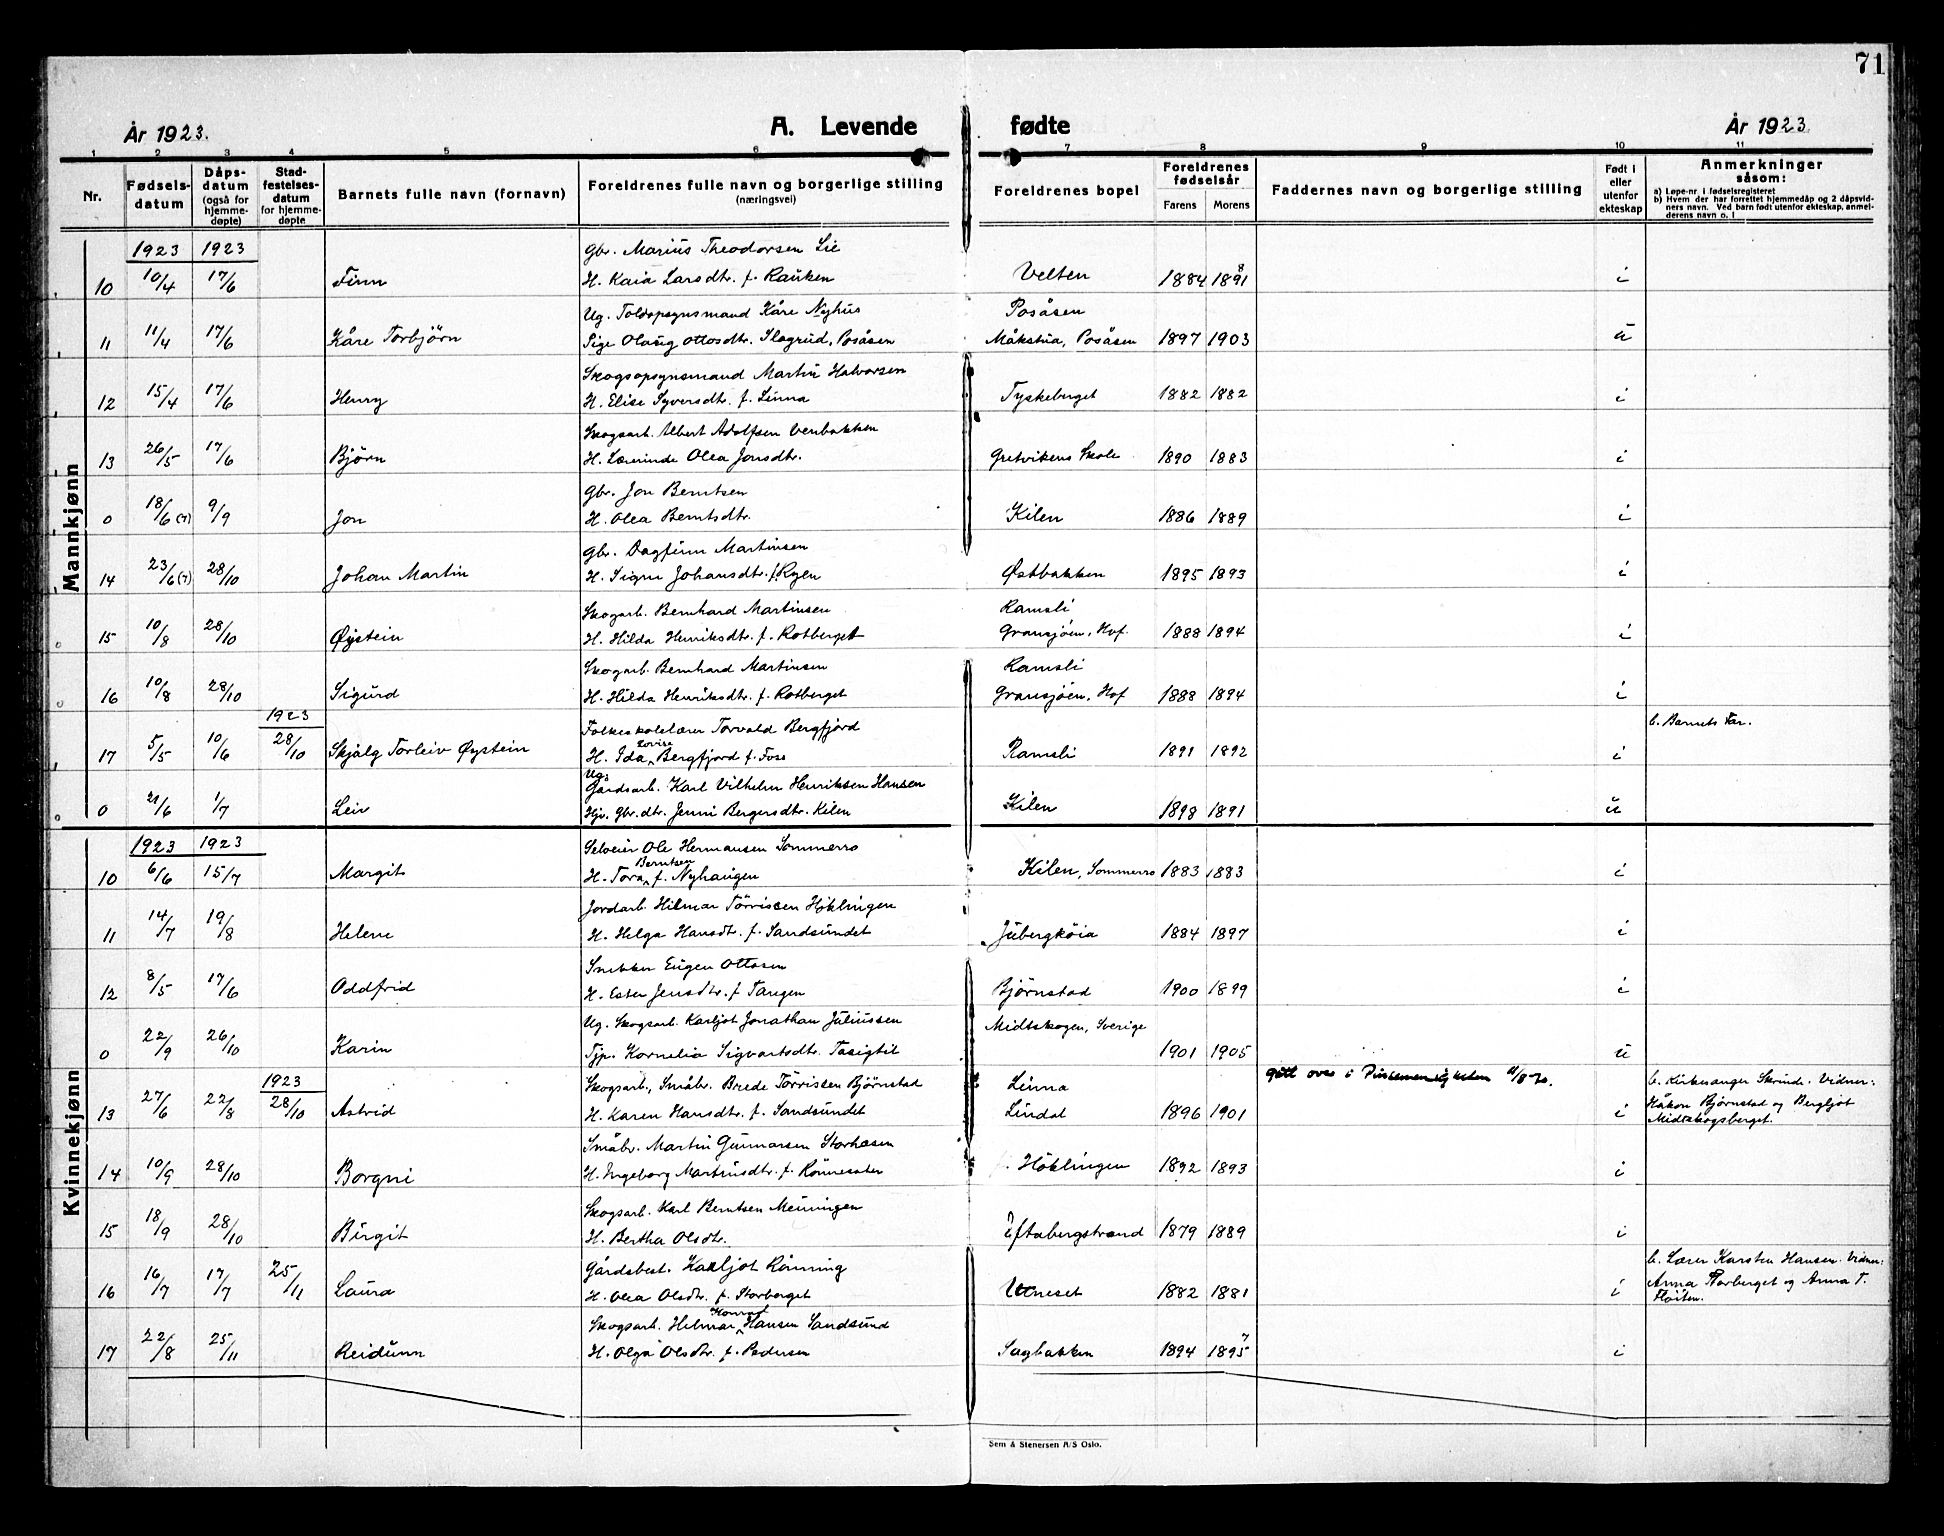 71
År 1923. A. Levende fødte År 1923.
1 2 3 4 5 6 7 8 9 10 11
Nr. Fødselsdatum Dåpsdatum (også for hjemmedøpte) Stadfestelsesdatum for hjemmedøpte Barnets fulle navn (fornavn) Foreldrenes fulle navn og borgerlige stilling (næringsvei) Foreldrenes bopel Foreldrenes fødselsår Farens Morens Faddernes navn og borgerlige stilling Født i eller utenfor ekteskap Anmerkninger såsom:
a) Løpe-nr. i fødselsregisteret
b) Hvem der har forrettet hjemmedåp og 2 dåpsvidners navn. Ved barn født utenfor ekteskap, anmelderens navn o. l
Mannkjønn
1923 1923 Gbr. Marius Theodorsen Lie
10 10/4 17/6 Finn H. Kaia Larsdtr. f. Rauken Velten 1884 1891 8 i
Ug. Toldopsynsmand Kåre Nyhus Posåsen
11 11/4 17/6 Kåre Torbjörn Pige Olaug Ottosdtr. Slagrud, Posåsen Måkstua, Posåsen 1897 1903 u
Skogsopsynsmand Martin Halvorsen
12 15/4 17/6 Henry H. Elise Syversdtr. f. Linna Tyskeberget 1882 1882 i
Skogsarb. Albert Adolfsen Venbakken
13 26/5 17/6 Björn H. Lærerinde Olea Jonsdtr. Gretvikens Skole 1890 1883 i
Gbr. Jon Berntsen
0 18/6 (7) 9/9 Jon H. Olea Berntsdtr. Kilen 1886 1889 i
Gbr. Dagfinn Martinsen
14 23/6 (7) 28/10 Johan Martin H. Signe Johansdtr. f. Ryen Østbakken 1895 1893 i
Skogarb. Bernhard Martinsen Ramsli
15 10/8 28/10 Øystein H. Hilda Henriksdtr. f. Rotberget Gransjöen, Hof. 1888 1894 i
Skogarb. Bernhard Martinsen Ramsli
16 10/8 28/10 Sigurd H. Hilda Henriksdtr. f. Rotberget Gransjöen, Hof 1888 1894 i
1923 Folkeskolelærer Torvald Bergfjord b. Barnets Far.
17 5/5 10/6 28/10 Skjalg Torleiv Øystein H. Ida Lovise Bergfjord f. Foss Ramsli 1891 1892 i
Ug. Gårdsarb. Karl Vilhelm Henriksen Hansen
0 21/6 1/7 Leiv Hjv. Gbr. dtr. Jenni Bergersdtr. Kilen Kilen 1898 1891 u
Kvinnekjønn
1923 1923 Selveier Ole Hermansen Sommerro
10 6/6 15/7 Margit H. Tora Berntsen f. Nyhaugen Kilen, Sommerro 1883 1883 i
Jordarb. Hilmar Törrissen Höklingen
11 14/7 19/8 Helene H. Helga Hansdtr. f. Sandsundet Jubergköia 1884 1897 i
Snekker Eugen Ottosen
12 8/5 17/6 Oddfrid H. Ester Jensdtr. f. Tangen Björnstad 1900 1899 i
Ug. Skogsarb. Karljot Jonathan Juliussen Midtskogen, Sverige
0 22/9 26/10 Karin Tjp. Kornelia Sigvartsdtr. Tasigtil 1901 1905 u
1923 Skogsarb., Småbr. Brede Törrissen Björnstad Linna gått over i b. Kirkesanger Skrinde. Vidner:
13 27/6 22/8 28/10 Astrid H. Karen Hansdtr. f. Sandsundet Lindal 1896 1901 i Håkon Björnstad og Bergljot Midtskogsberget.
Småbr. Martin Gunnarsen Storhasen
14 10/9 28/10 Borgni H. Ingeborg Martinsdtr. f. Rönnesæter Höklingen 1892 1893 i
Skogsarb. Karl Berntsen Menningen
15 18/9 28/10 Birgit H. Bertha Olsdtr. Eftabergstrand 1879 1889 i
Gårdsbest. Karljot Rönning b. Lærer Karsten Hansen. Vidner:
16 16/7 17/7 25/11 Laura H. Olea Olsdtr. f. Storberget Utneset 1882 1881 i Anna Storberget og Anna T. Fløiten.
Skogsarb. Helmar Konrad Hansen Sandsund
17 22/8 25/11 Reidunn H. Olga Olsdtr. f. Pedersen Sagbakken 1894 1895 7 i
Sem & Stenersen A/S Oslo.